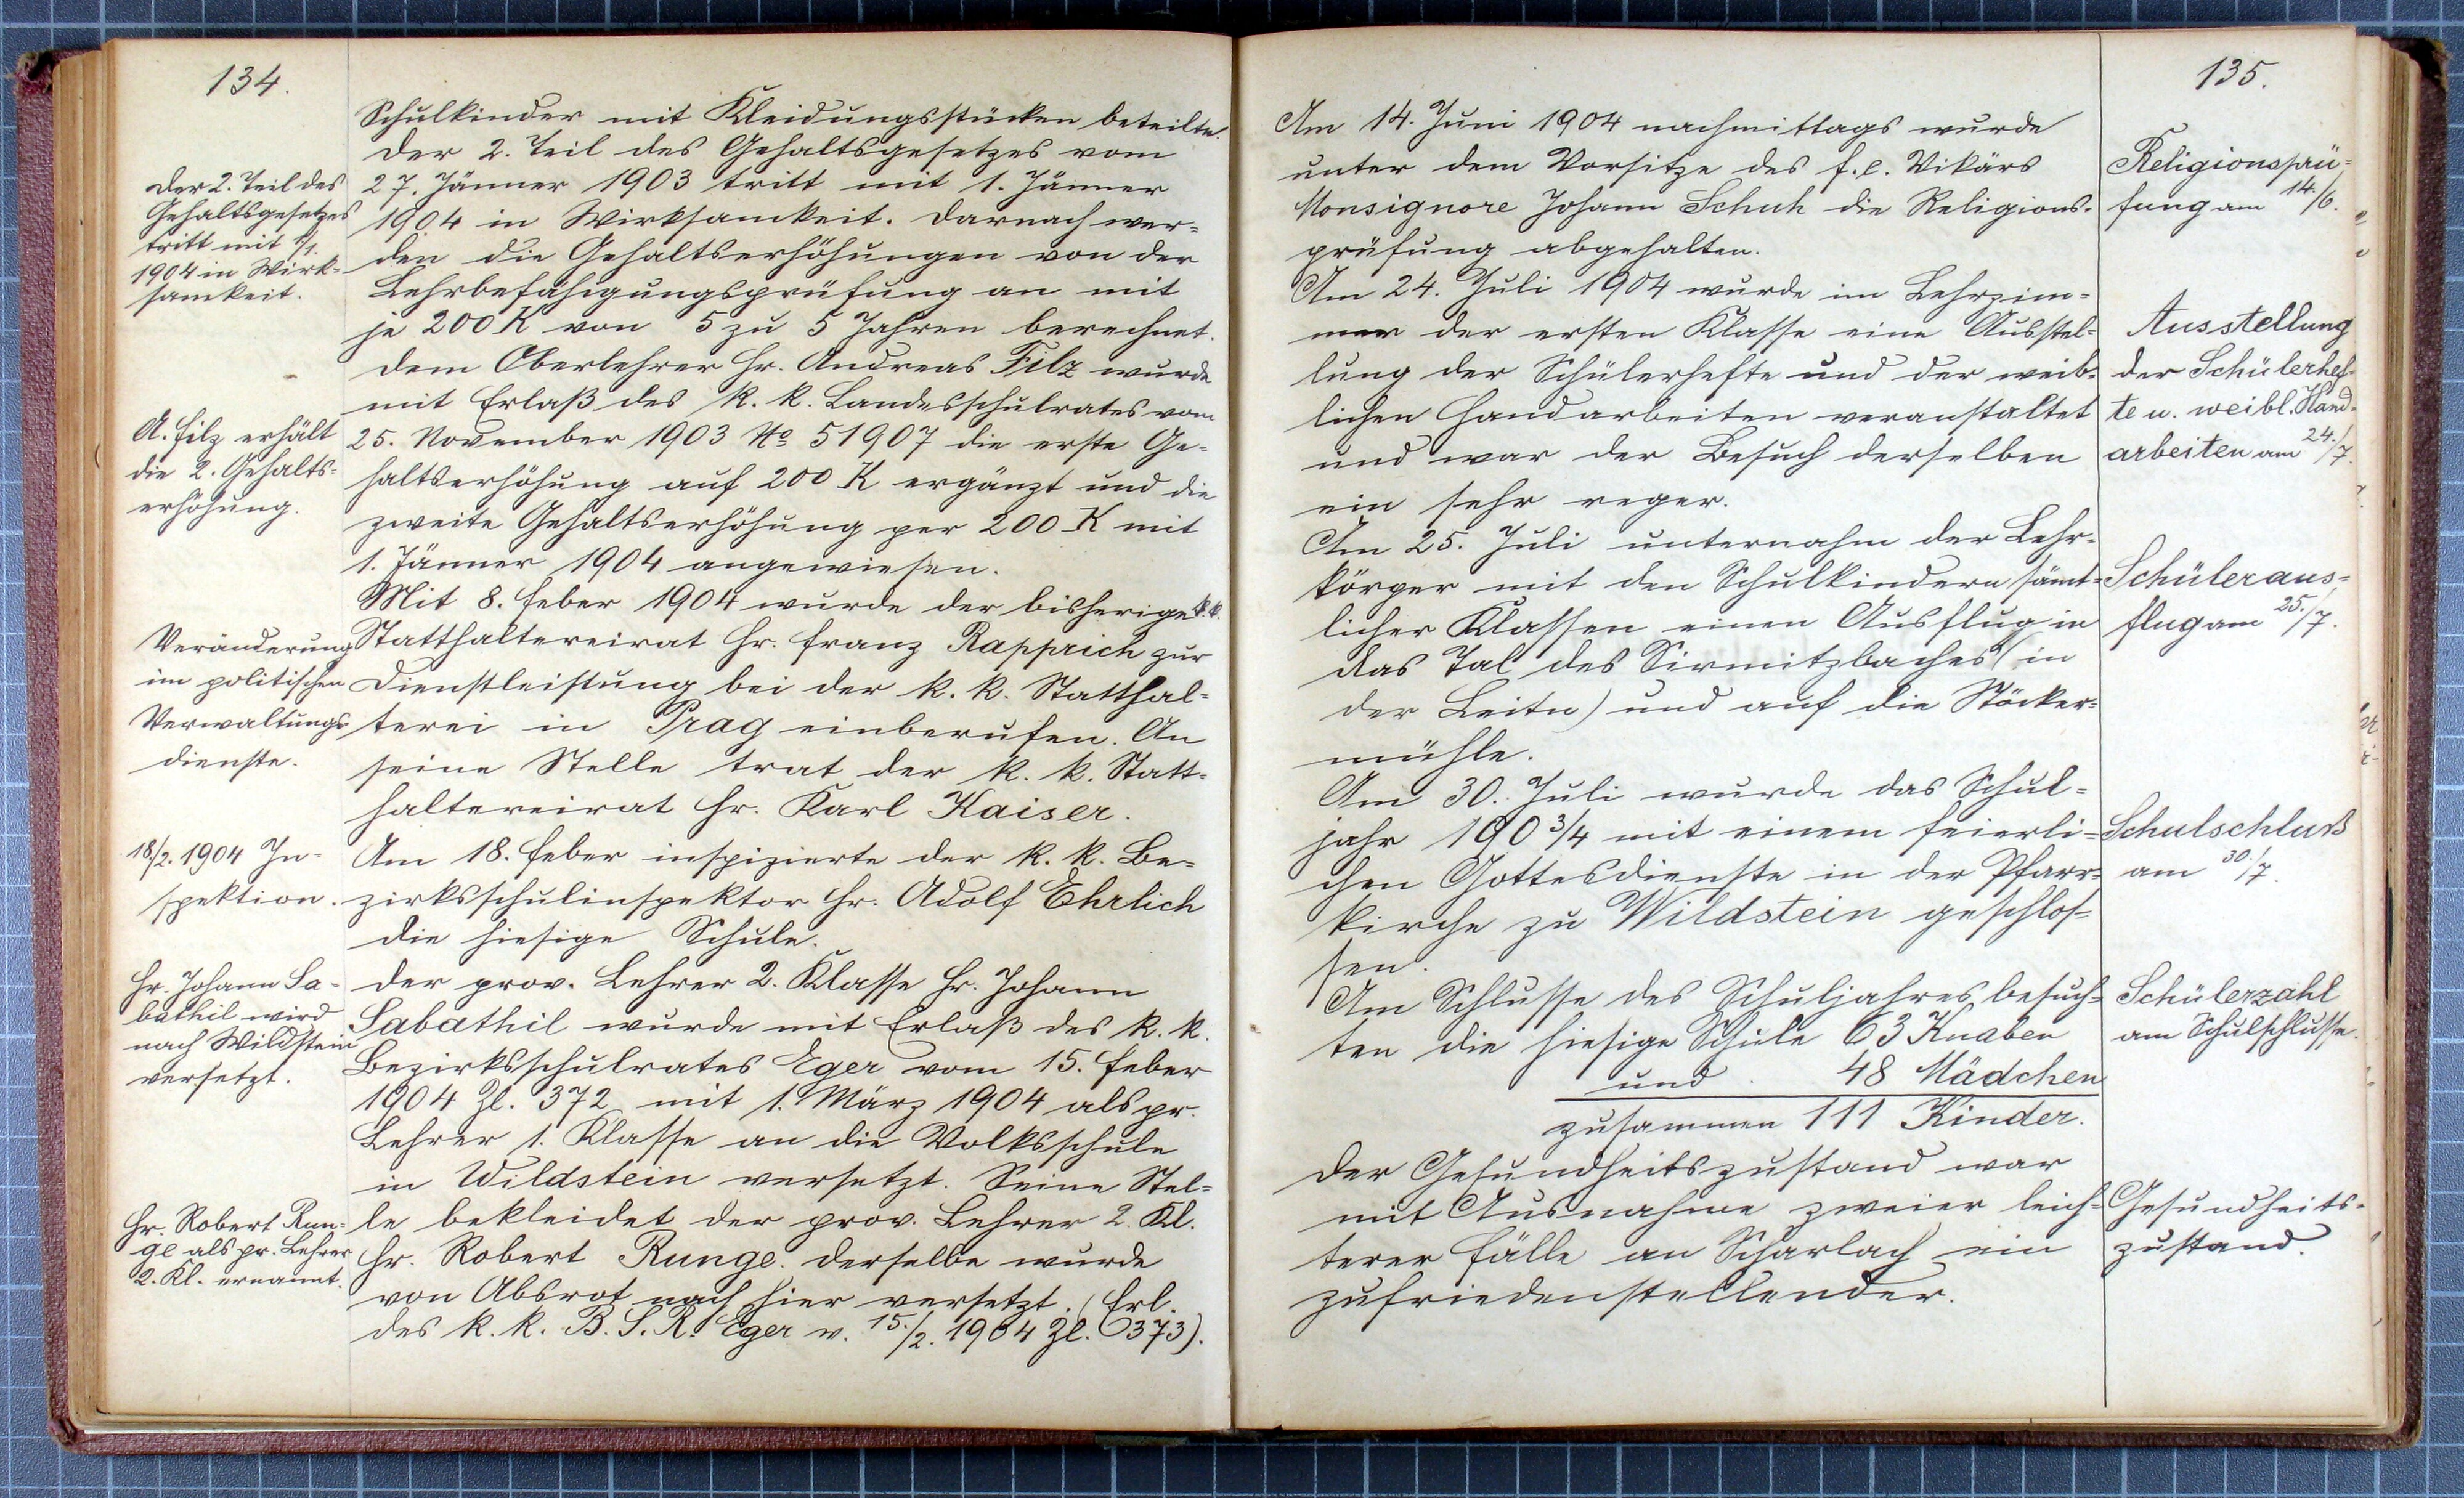 134.
Schulkinder mit Kleidungsstücken beteilte.
Der 2. Teil des Gehaltsgesetzes vom
27. Jänner 1903 tritt mit 1. Jänner
1904 in Wirksamkeit. Darnach wer-
den die Gehaltserhöhungen von der
Lehrbefähigungsprüfung an mit
je 200 K von 5 zu 5 Jahren berechnet.
Dem Oberlehrer Hr. Andreas Filz wurde
mit Erlaß des k. k. Landesschulrates vom
25. November 1903 No 51907 die erste Ge-
haltserhöhung auf 200 K ergänzt und die
zweite Gehaltserhöhung per 200 K mit
1. Jänner 1904 angewiesen.
Mit 8. Feber 1904 wurde der bisherige k. k.
Statthaltereirat Hr. Franz Rapprich zur
Dienstleistung bei der k. k. Statthal-
terei in Prag einberufen. An
seine Stelle trat der k. k. Statt-
haltereirat Hr. Karl Kaiser.
Am 18. Feber inspizierte der k. k. Be-
zirksschulinspektor Hr. Adolf Ehrlich
die hiesige Schule.
Der prov. Lehrer 2. Klasse Hr. Johann
Sabathil wurde mit Erlaß des k. k.
Bezirksschulrates Eger vom 15. Feber
1904 Zl. 372 mit 1. März 1904 als pr.
Lehrer 1. Klasse an die Volksschule
in Wildstein versetzt. Seine Stel-
le bekleidet der prov. Lehrer 2. Kl.
Hr. Robert Runge. Derselbe wurde
von Absrot nach hier versetzt. (Erl.
des k. k. B. S. R. Eger v. 15./2. 1904 Zl. 373).
Der 2. Teil des
Gehaltsgesetzes
tritt mit 1./1.
1904 in Wirk-
samkeit.
A. Filz erhält
die 2. Gehalts-
erhöhung.
Veränderung
im politischen
Verwaltungs-
dienste.
18./2. 1904 In-
spektion.
Hr. Johann Sa-
bathil wird
nach Wildstein
versetzt.
Hr. Robert Run-
ge als pr. Lehrer
2. Kl. ernannt.
135.
Am 14. Juni 1904 nachmittags wurde
unter dem Vorsitze des f. e. Vikärs
Monsignore Johann Schuh die Religions-
prüfung abgehalten.
Am 24. Juli 1904 wurde im Lehrzim-
mer der ersten Klasse eine Ausstel-
lung der Schülerhefte und der weib-
lichen Handarbeiten veranstaltet
und war der Besuch derselben
ein sehr reger.
Am 25. Juli unternahm der Lehr-
körper mit den Schulkindern sämt-
licher Klassen einen Ausflug in
das Tal des Sirmitzbaches (in
der Leitn) und auf die Stöcker-
mühle.
Am 30. Juli wurde das Schul-
jahr 1903/4 mit einem feierli-
chen Gottesdienste in der Pfarr-
kirche zu Wildstein geschlos-
sen.
Am Schlusse des Schuljahres besuch-
ten die hiesige Schule 63 Knaben
und 48 Mädchen
zusammen 111 Kinder.
Der Gesundheitszustand war
mit Ausnahme zweier leich-
terer Fälle an Scharlach ein
zufriedenstellender.
Religionsprü-
fung am 14./6.
Ausstellung
der Schülerhef-
te u. weibl. Hand-
arbeiten am 24./7.
Schüleraus-
flug am 25./7.
Schulschluß
am 30./7.
Schülerzahl
am Schulschlusse.
Gesundheits-
zustand.